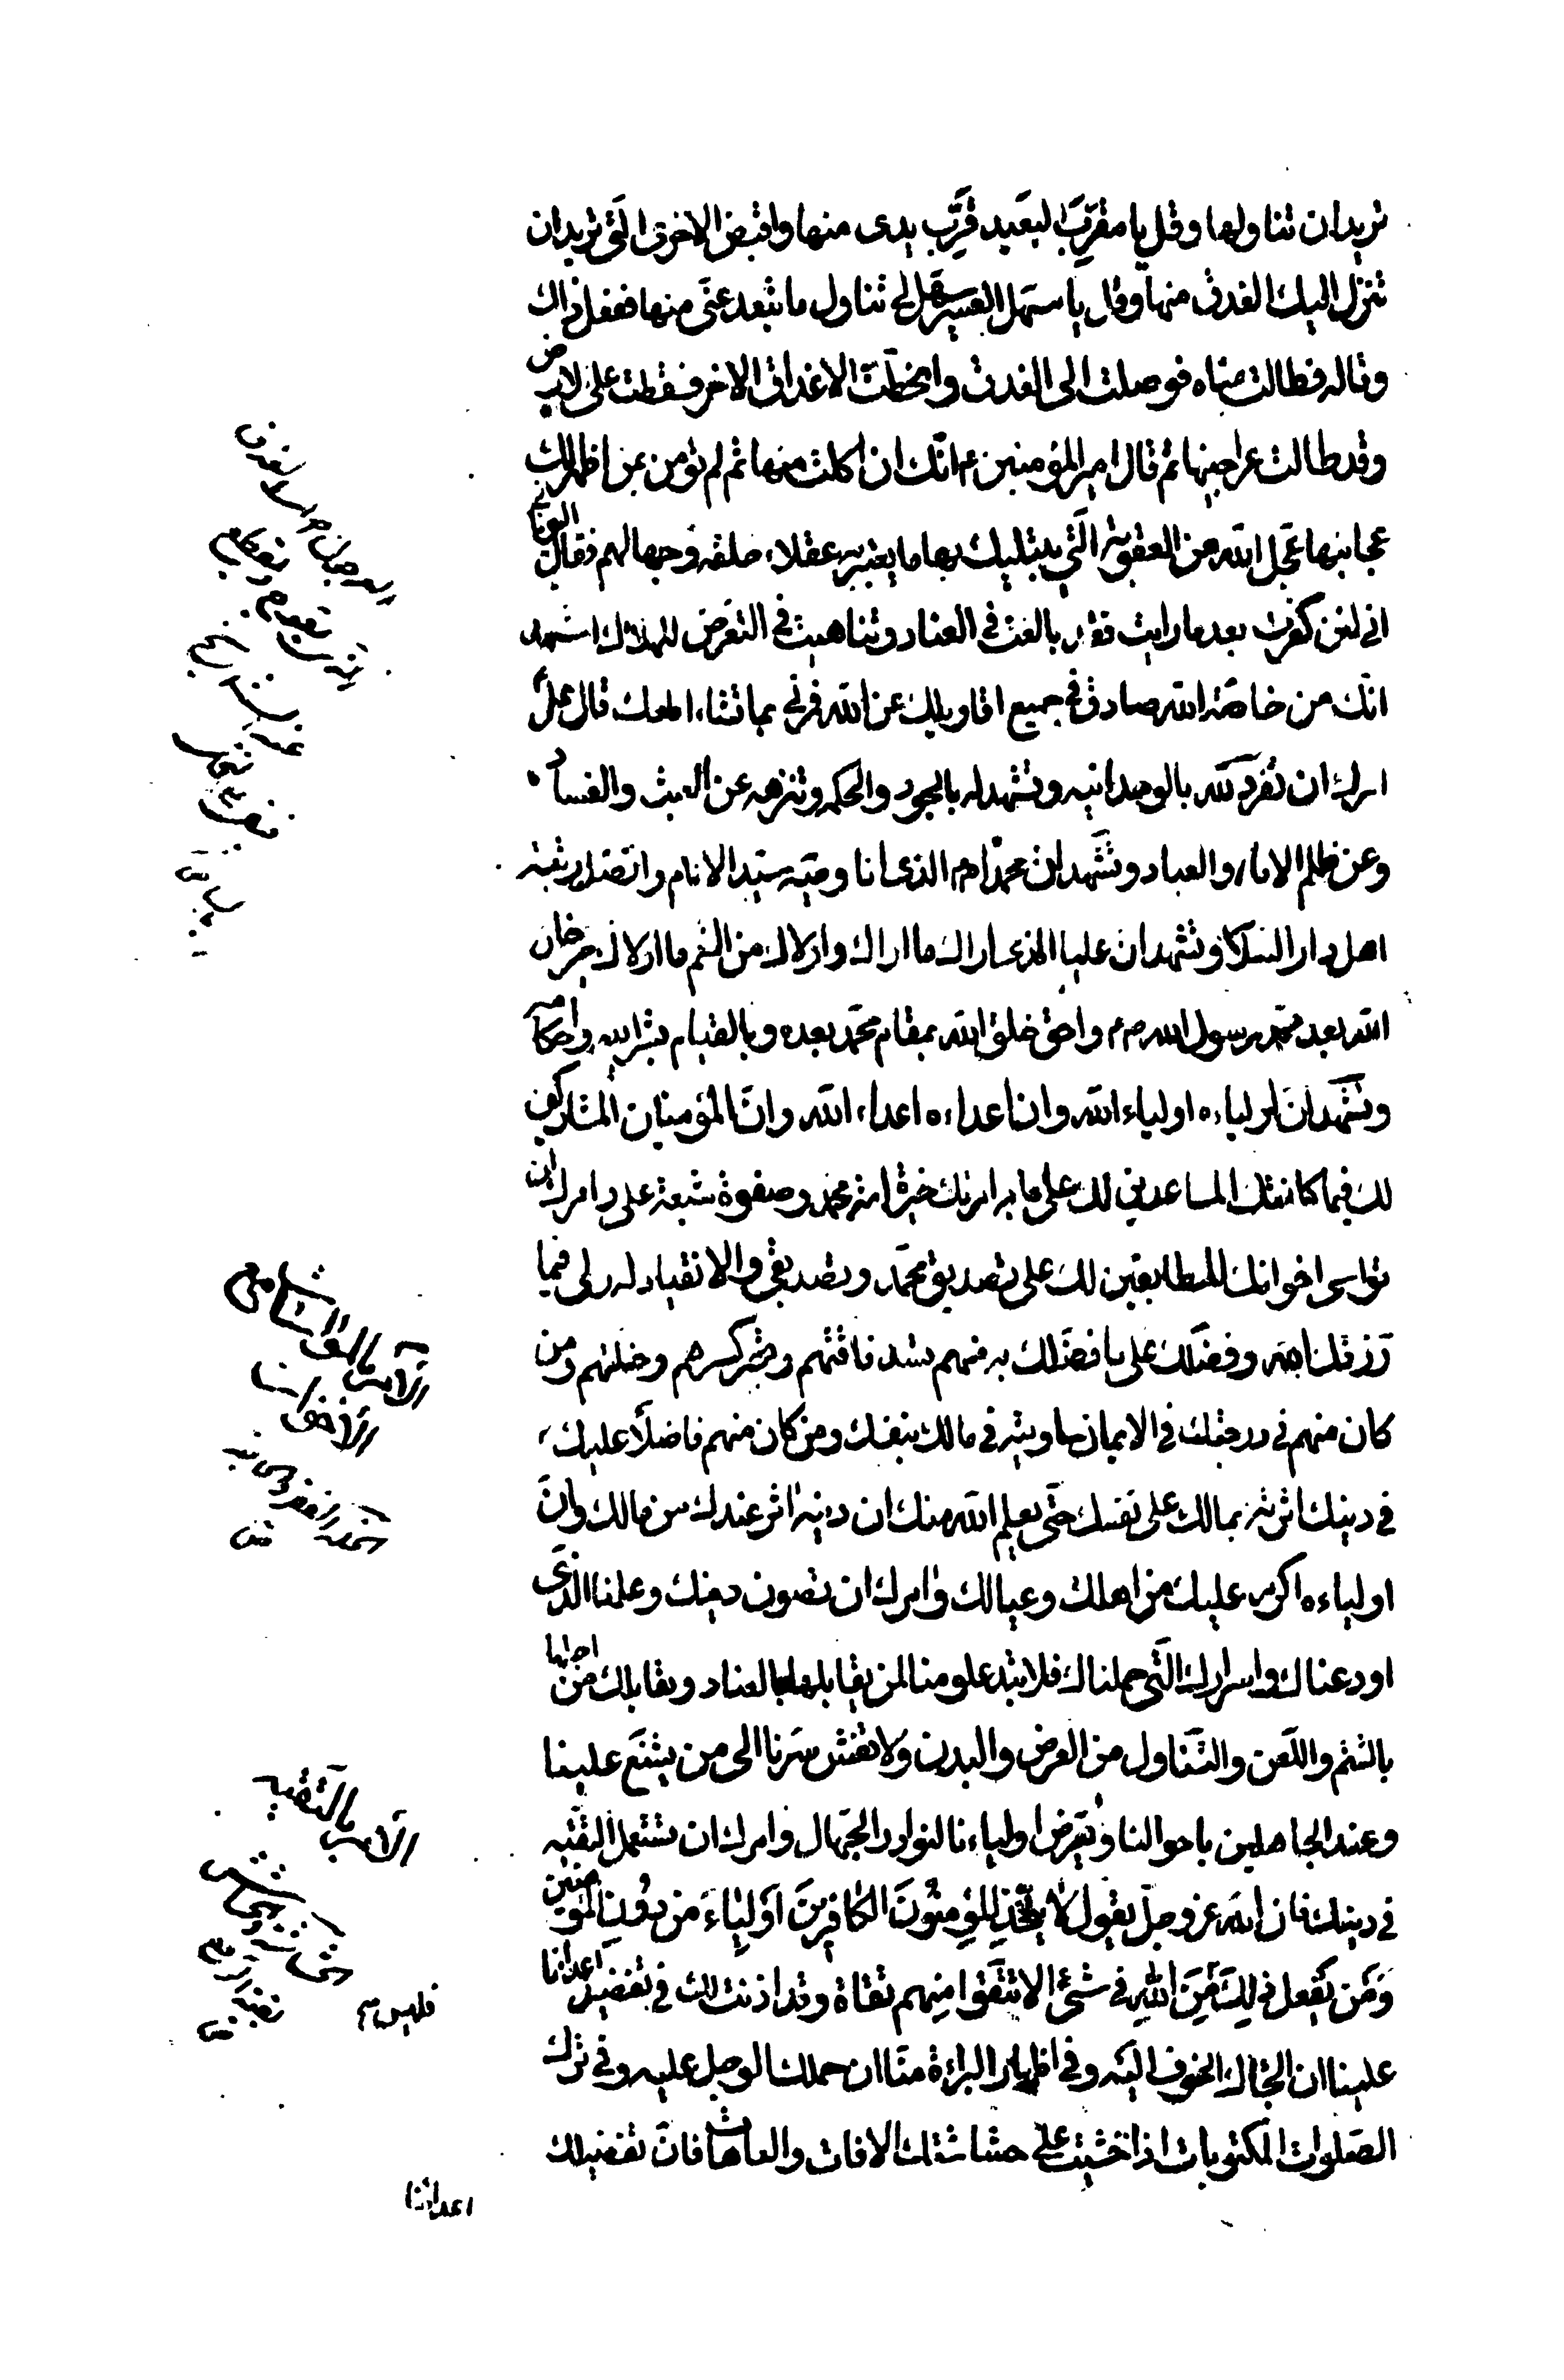 تريدان تناولها وقل يا مقرّب البعيد قرّب يدى منها واقبض الاخرى الّتى تريدان
تنزل اليك العذق منها وقل يا مسهل العسير سهّل لى تناول ما تبعد عنّى منها ففعل ذلك
وقاله فطالت يمناه فوصلت الى العذق وانحطّت الاعذاق الاخر فسقطت على الارض
وقد طالت عراجينها ثم قال امير المؤمنين ع انّك ان اكلت منها ثم لم تؤمن بمن اظهر لك
عجائبها عجل الله عز العقوبة الّتى يبتليك بها ما يعتبر به عقلاء خلقه وجهالهم فقال اليونانى
انى لئن كفرت بعد ما رايت فقد بالغت فى العناد وتناهيت فى التعرّض للهلاك اشهد
انّك من خاصّة الله صادق فى جميع اقاويلك عن الله فمرنى بما تشاء اطعك قال علىّ
امرك ان تفرد لله بالوحدانيه وتشهد له بالجود والحكمه وتنزهه عن العبث والفساد
وعن ظلم الاماء والعباد وتشهد ان محمدا ص الذى انا وصيّه سيّد الانام وافضل رتبة
اهل دار السلام وتشهد ان عليا الذى اراك ما اراك واولاك من النعم ما اولاك خير خلق
الله بعد محمّد رسول الله ص واحق خلق الله بمقام محمّد بعده وبالقيام بشرايعه واحكامه
وتشهد ان اولياءه اولياء الله وان اعداءه اعداء الله وانّ المؤمنين المشاركين
لك فيما كلفتك المساعدين لك على ما به امرتك خيرة امة محمد وصفوة شيعة على وامرك ان
تواسى اخوانك المطابقين لك على تصديق محمّد وتصديقى والانقياد له ولى فيما
رزقك الله وفضلك على ما فضّلك به منهم تسد فاقتهم وتجبر كسرهم وخلتهم ومن
كان منهم فى درجتك فى الايمان ساويته فى مالك بنفسك ومن كان منهم فاضلا عليك
فى دينك اثرته بمالك على نفسك حتّى يعلم الله منك ان دينه اثر عندك من مالك وانّ
اولياءه اكرم عليك من اهلك وعيالك وامرك ان تصون دينك وعلمنا الذى
اودعناك واسرارنا الّتى حملناك فلا تبد علومنا لمن يقابلها بالعناد ويقابلك من اجلها
بالشتم واللّعن والتّناول من العرض والبدن ولا تفش سرنا الى من يشنّع علينا
وعند الجاهلين باحوالنا وتعرض اولياءنا لنوادر الجهال وامرك ان تستعمل التقيّه
فى دينك فان الله عز وجل يقول لا يتّخذ المؤمنون الكافرين اولياء من دون المؤمنين
ومن يفعل ذلك فليس من الله فى شئ الا ان تتّقوا منهم تقاة وقد اذنت لك فى تفضيل اعدائنا
علينا ان الجاك الخوف اليه وفى اظهار البراءة منّا ان حملك الوجل عليه وفى ترك
الصلوات المكتوبات اذا خشيت على حشاشتك الافات والعاهات فانّ تفضيلك
اعدائنا
الامر بالمواساة مع
الاخوان
الامر بالتقيه
فليس